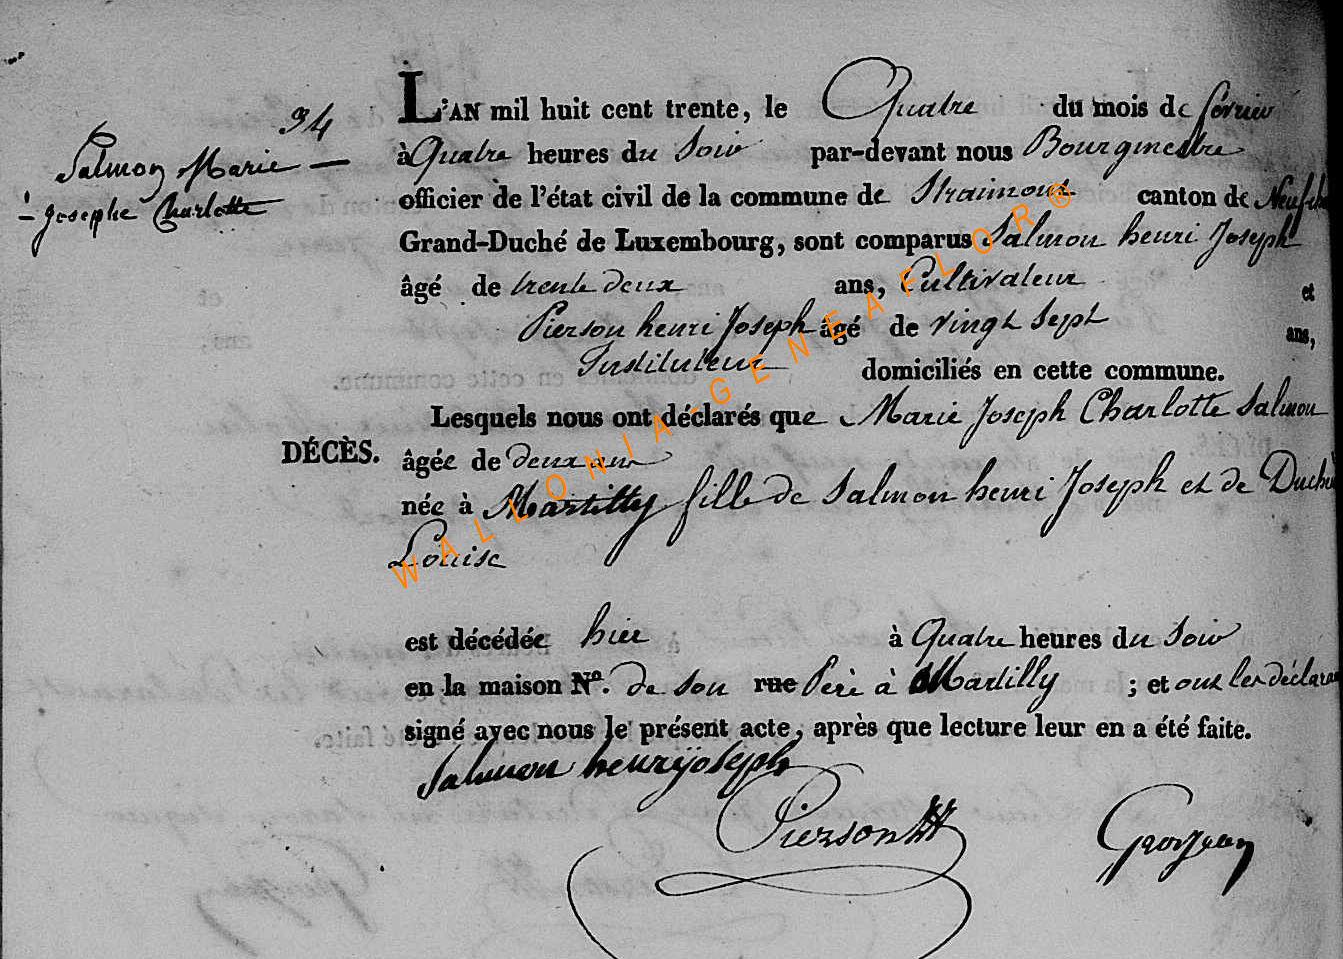 34
Salmon Marie —
- Josephe Charlotte
L'AN mil huit cent trente, le Quatre du mois de fevrier
à Quatre heures du Soir par-devant nous Bourgmestre
officier de l'état civil de la commune de Straimont canton de
Grand-Duché de Luxembourg, sont comparus Salmon henri Joseph
âgé de trente deux ans, Cultivateur et
Pierson henri Joseph âgé de vingt Sept ans,
Instituteur domiciliés en cette commune.
Lesquels nous ont déclarés que Marie Joseph Charlotte Salmon
DÉCÈS.
âgée de deux ans
née à Martilly fille de Salmon henri Joseph et de
Louise
est décédée hier à Quatre heures du Soir
en la maison Nº. de son rue Père à Martilly ; et ont les
signé avec nous le présent acte, après que lecture leur en a été faite.
Salmon henrijoseph
Pierson HJ
Grosjean
WALLONIA-GENEAFLOR®